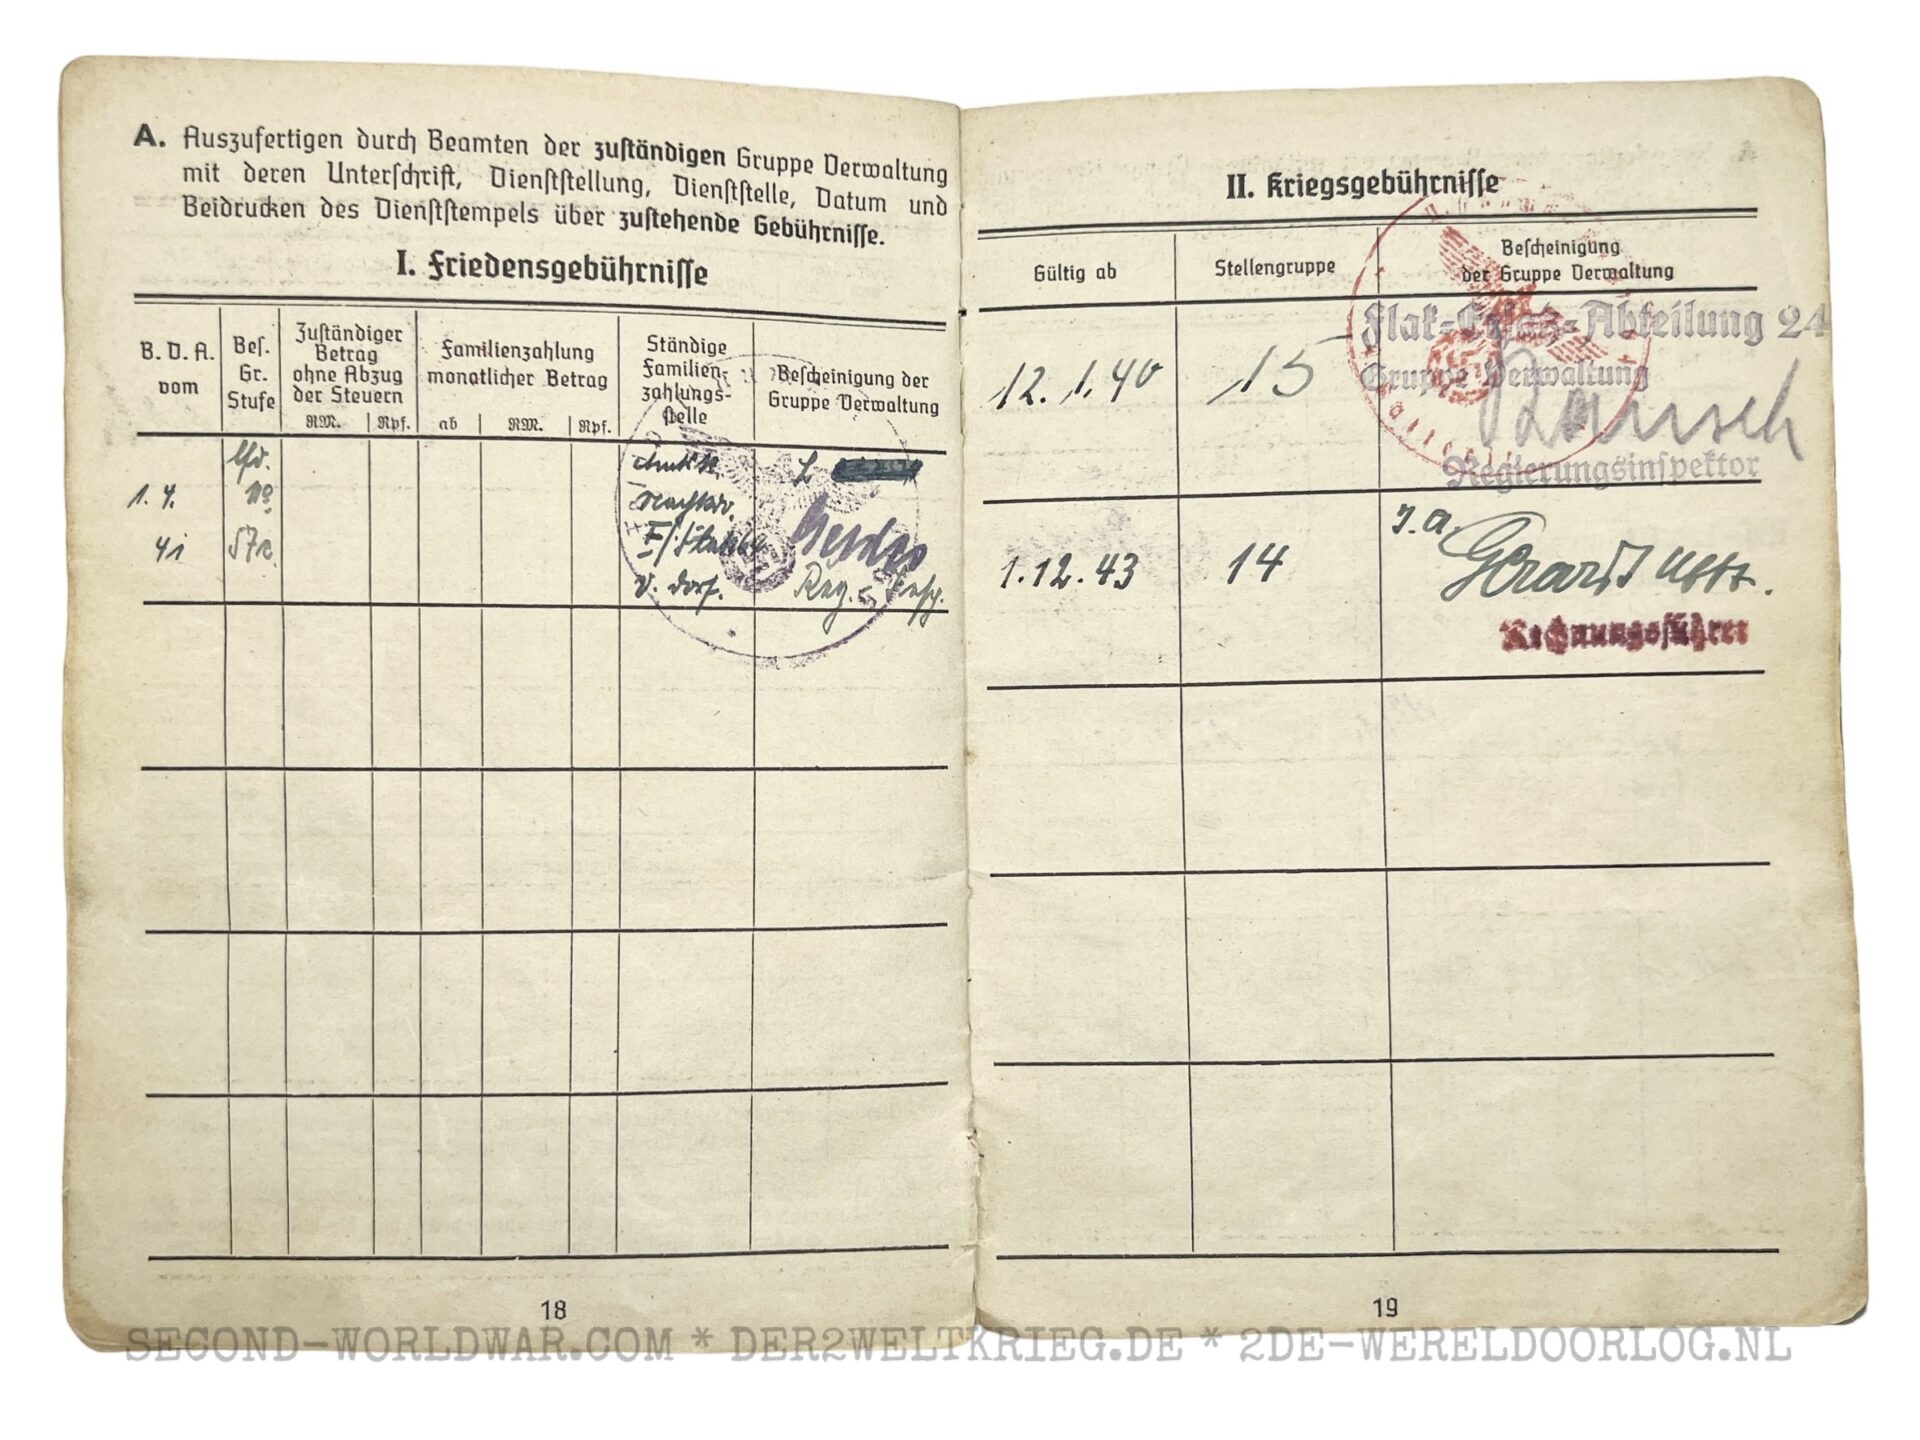 A. Auszufertigen durch Beamten der zuständigen Gruppe Verwaltung
mit deren Unterschrift, Dienststellung, Dienststelle, Datum und
Beidrucken des Dienststempels über zustehende Gebührnisse.
I. Friedensgebührnisse
B. D. A.
vom
Bes.
Gr.
Stufe
Zuständiger
Betrag
ohne Abzug
der Steuern
RM.
Rpf.
Familienzahlung
monatlicher Betrag
ab
RM.
Rpf.
Ständige
Familien-
zahlungs-
stelle
Bescheinigung der
Gruppe Verwaltung
1. 4.
41
18
II. Kriegsgebührnisse
Gültig ab
Stellengruppe
Bescheinigung
der Gruppe Verwaltung
12. 1. 40
15
Flak-Ersatz-Abteilung 24
Gruppe Verwaltung
Regierungsinspektor
1. 12. 43
14
J. A.
Uffz.
Rechnungsführer
19
SECOND-WORLDWAR.COM * DER2WELTKRIEG.DE * 2DE-WERELDOORLOG.NL